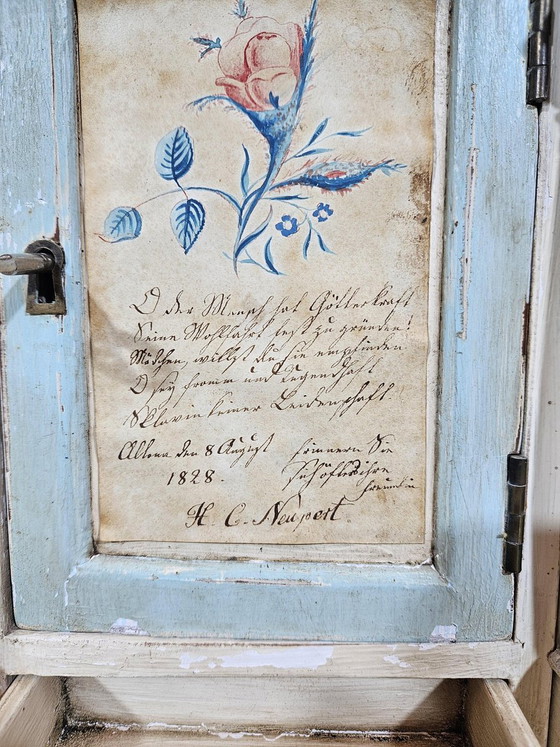 O der Mensch hat Götterkraft
Seine Wohlfahrt fest zu gründen!
Mädchen, willst du sie empfinden
O sey fromm und tugendhaft
Sklavin keiner Leidenschaft.
Altona den 8 August
1828.
Erinnern Sie
sich öfters ihre
Freundin
H. C. Neupert.